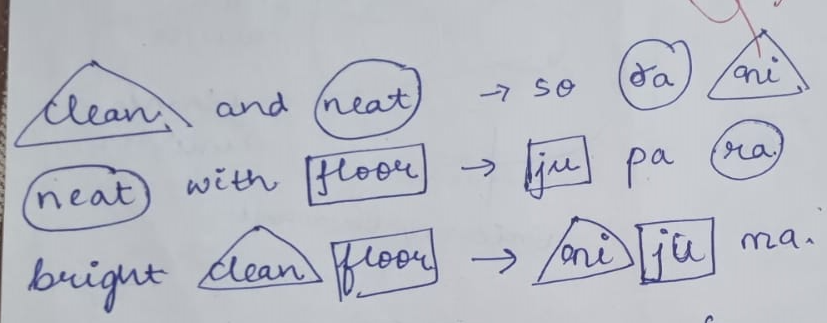 clean and neat → so ra mi
neat with floor → ju pa ra
bright clean floor → mi ju ma.